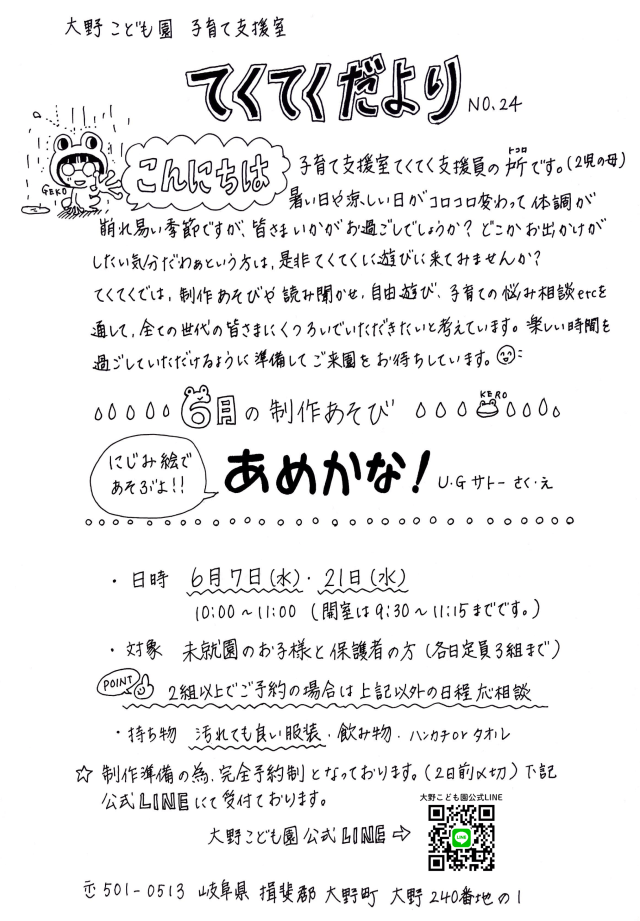 大野こども園 子育て支援室
てくてくだより NO.24
GEKO
こんにちは
トコロ
子育て支援室てくてく支援員の所です。(2児の母)
暑い日や涼しい日がコロコロ変わって体調が
崩れ易い季節ですが、皆さまいかがお過ごしでしょうか?どこかお出かけが
したい気分だわぁという方は、是非てくてくに遊びに来てみませんか?
てくてくでは、制作あそびや読み聞かせ、自由遊び、子育ての悩み相談etcを
通して、全ての世代の皆さまにくつろいでいただきたいと考えています。楽しい時間を
過ごしていただけるように準備してご来園をお待ちしています。
6月の制作あそび
KERO
にじみ絵で
あそぶよ!!
あめかな! U.Gサトー さく・え
・日時 6月7日(水)・21日(水)
10:00~11:00 (開室は9:30~11:15までです。)
・対象 未就園のお子様と保護者の方(各日定員3組まで)
POINT 2組以上でご予約の場合は上記以外の日程応相談
・持ち物 汚れても良い服装・飲み物・ハンカチorタオル
☆ 制作準備の為、完全予約制となっております。(2日前〆切)下記
公式LINEにて受付ております。
大野こども園公式LINE
大野こども園公式LINE⇨
LINE
〒501-0513 岐阜県 揖斐郡 大野町 大野240番地の1